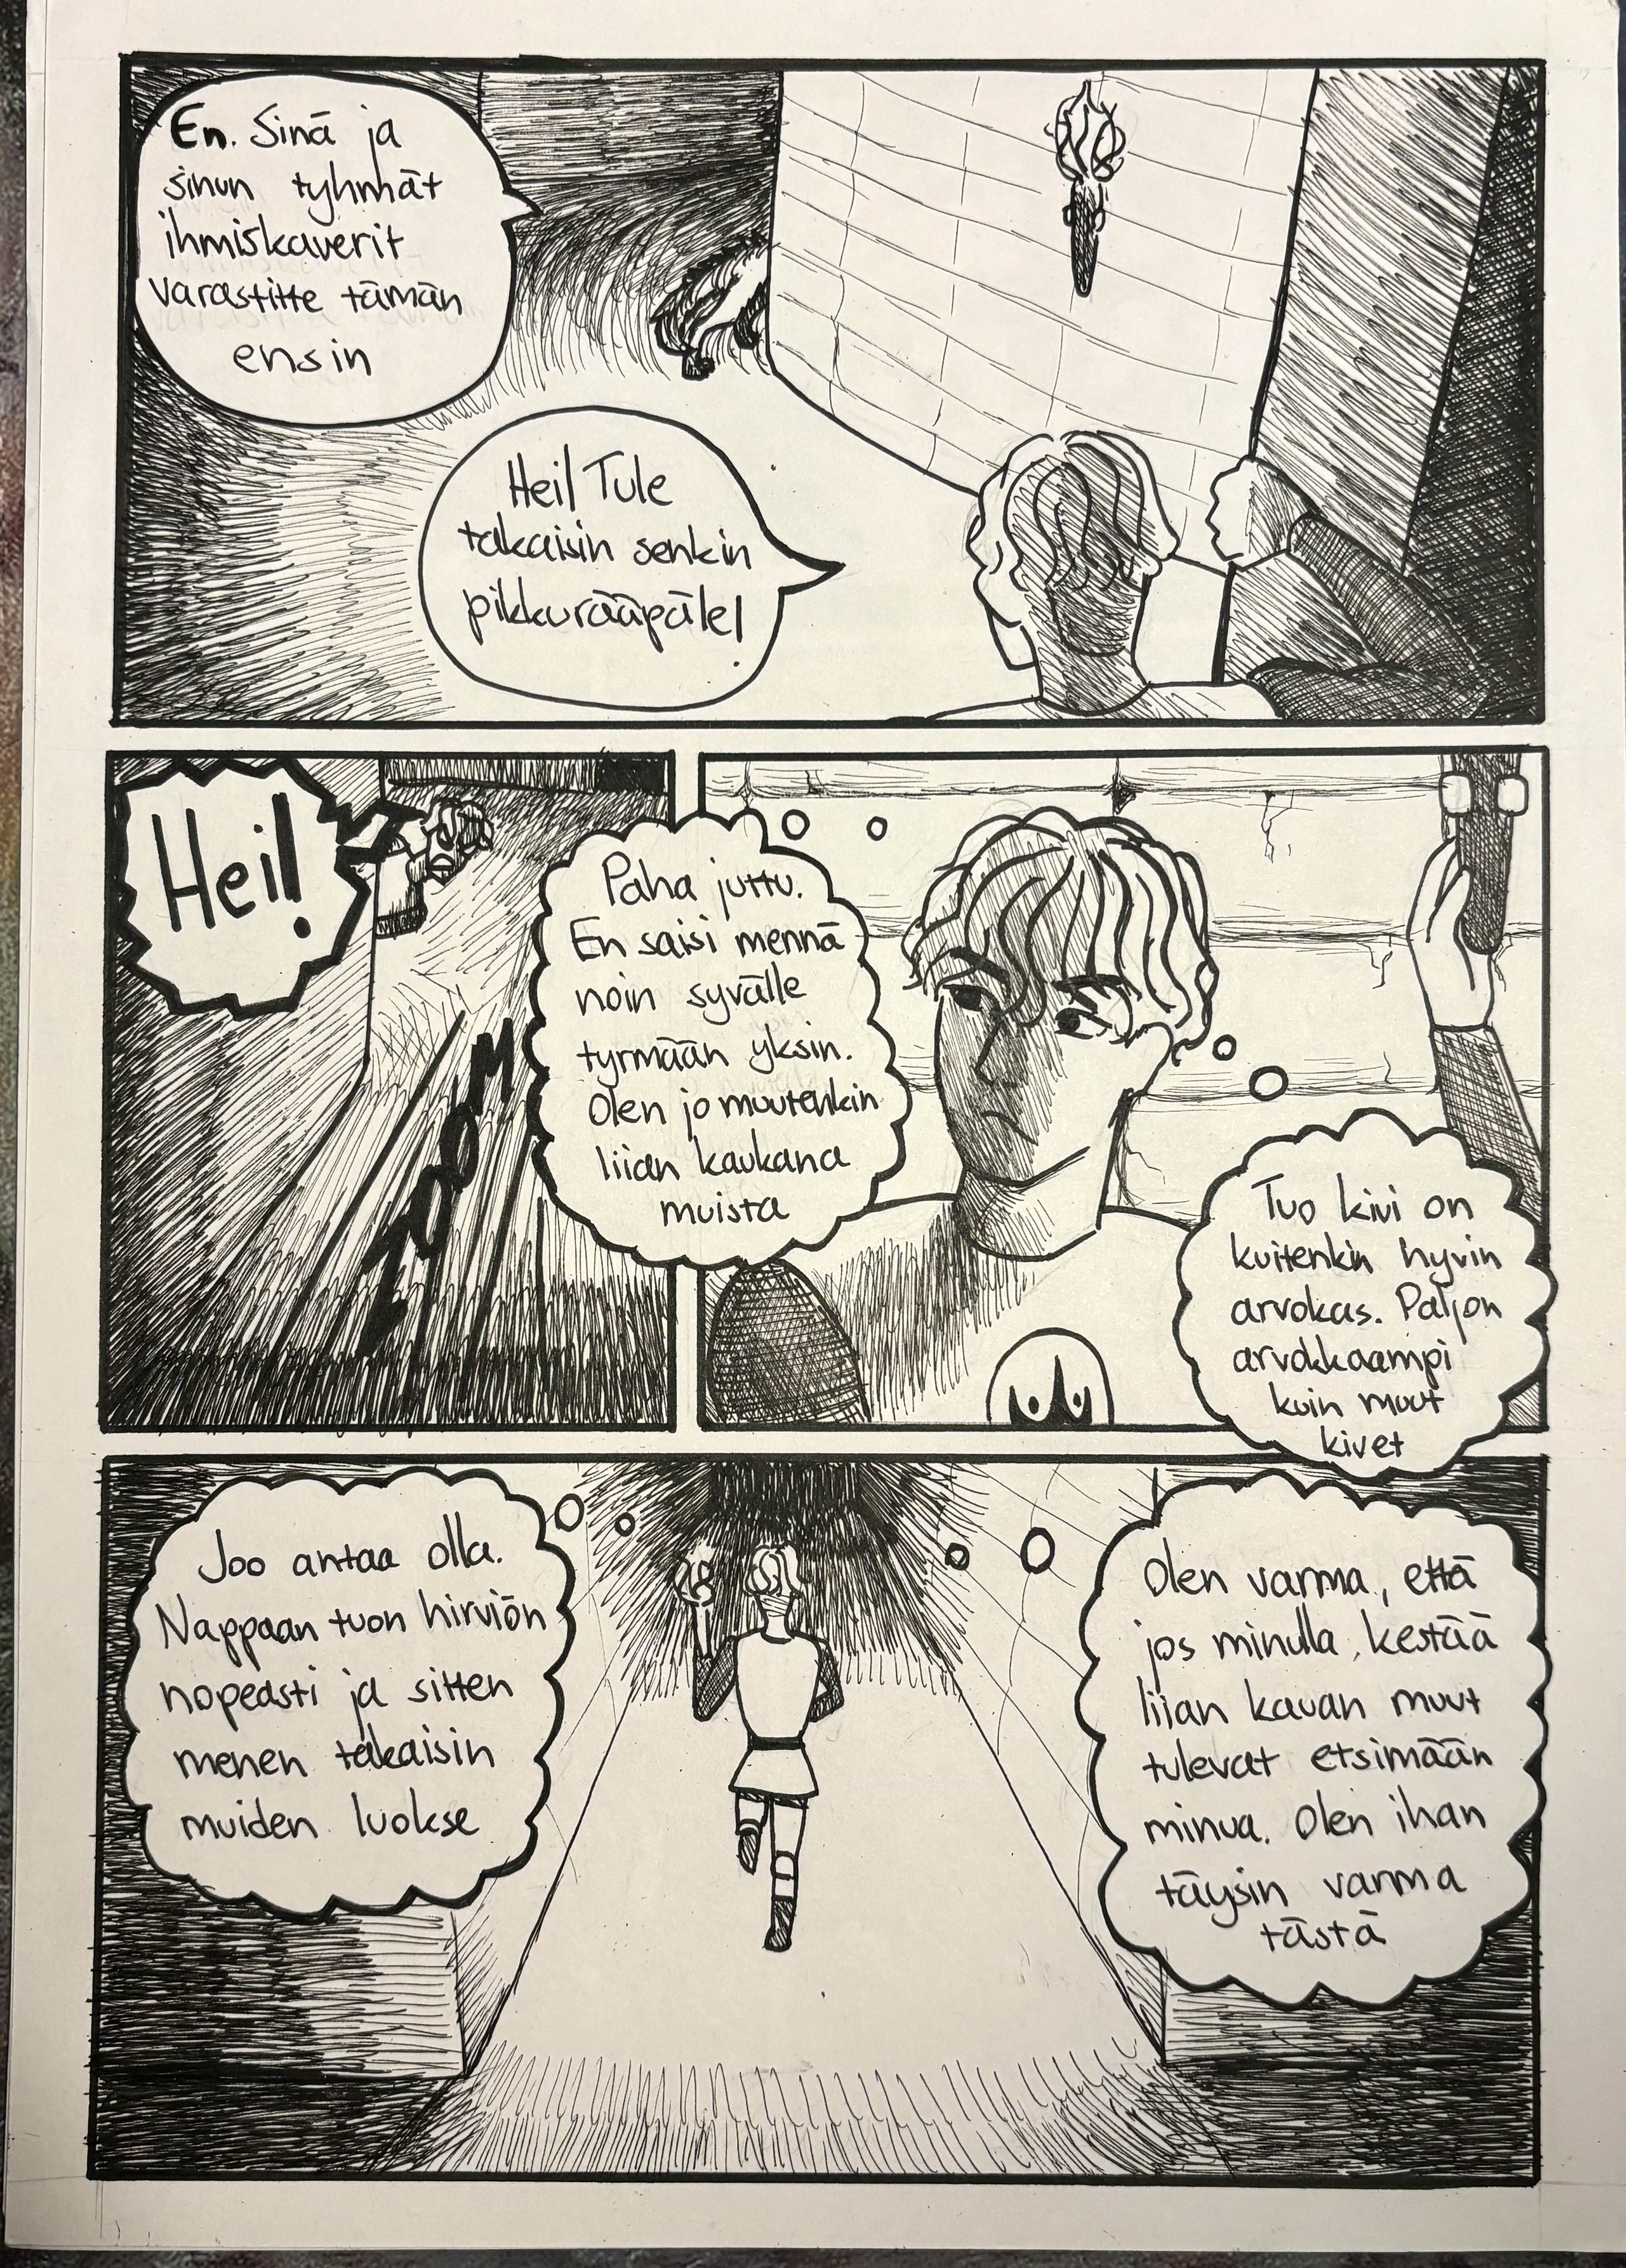 En. Sinä ja
sinun tyhmät
ihmiskaverit
varastitte tämän
ensin
Hei! Tule
takaisin senkin
pikkurääpäle!
Hei!
ZOOM
Paha juttu.
En saisi mennä
noin syvälle
tyrmään yksin.
Olen jo muutenkin
liian kaukana
muista
Tuo kivi on
kuitenkin hyvin
arvokas. Paljon
arvokkaampi
kuin muut
kivet
Joo antaa olla.
Nappaan tuon hirviön
nopeasti ja sitten
menen takaisin
muiden luokse
Olen varma, että
jos minulla kestää
liian kauan muut
tulevat etsimään
minua. Olen ihan
täysin varma
tästä